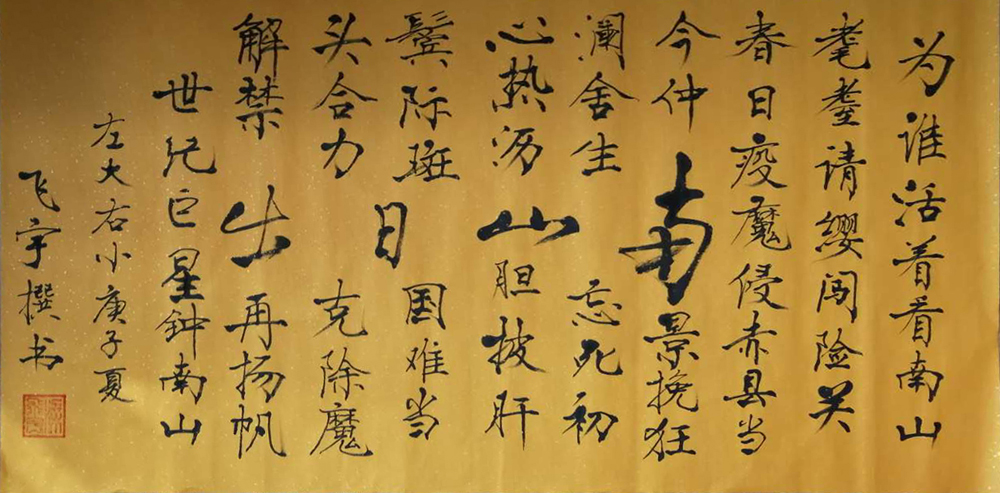 为谁活着看南山
耄耋请缨闯险关
春日疫魔侵赤县当
今仲南景挽狂
澜舍生忘死初
心热沥山胆披肝
鬓际斑日国难当
头合力克除魔
解禁出再扬帆
世纪巨星钟南山
左大右小庚子夏
飞宇撰书